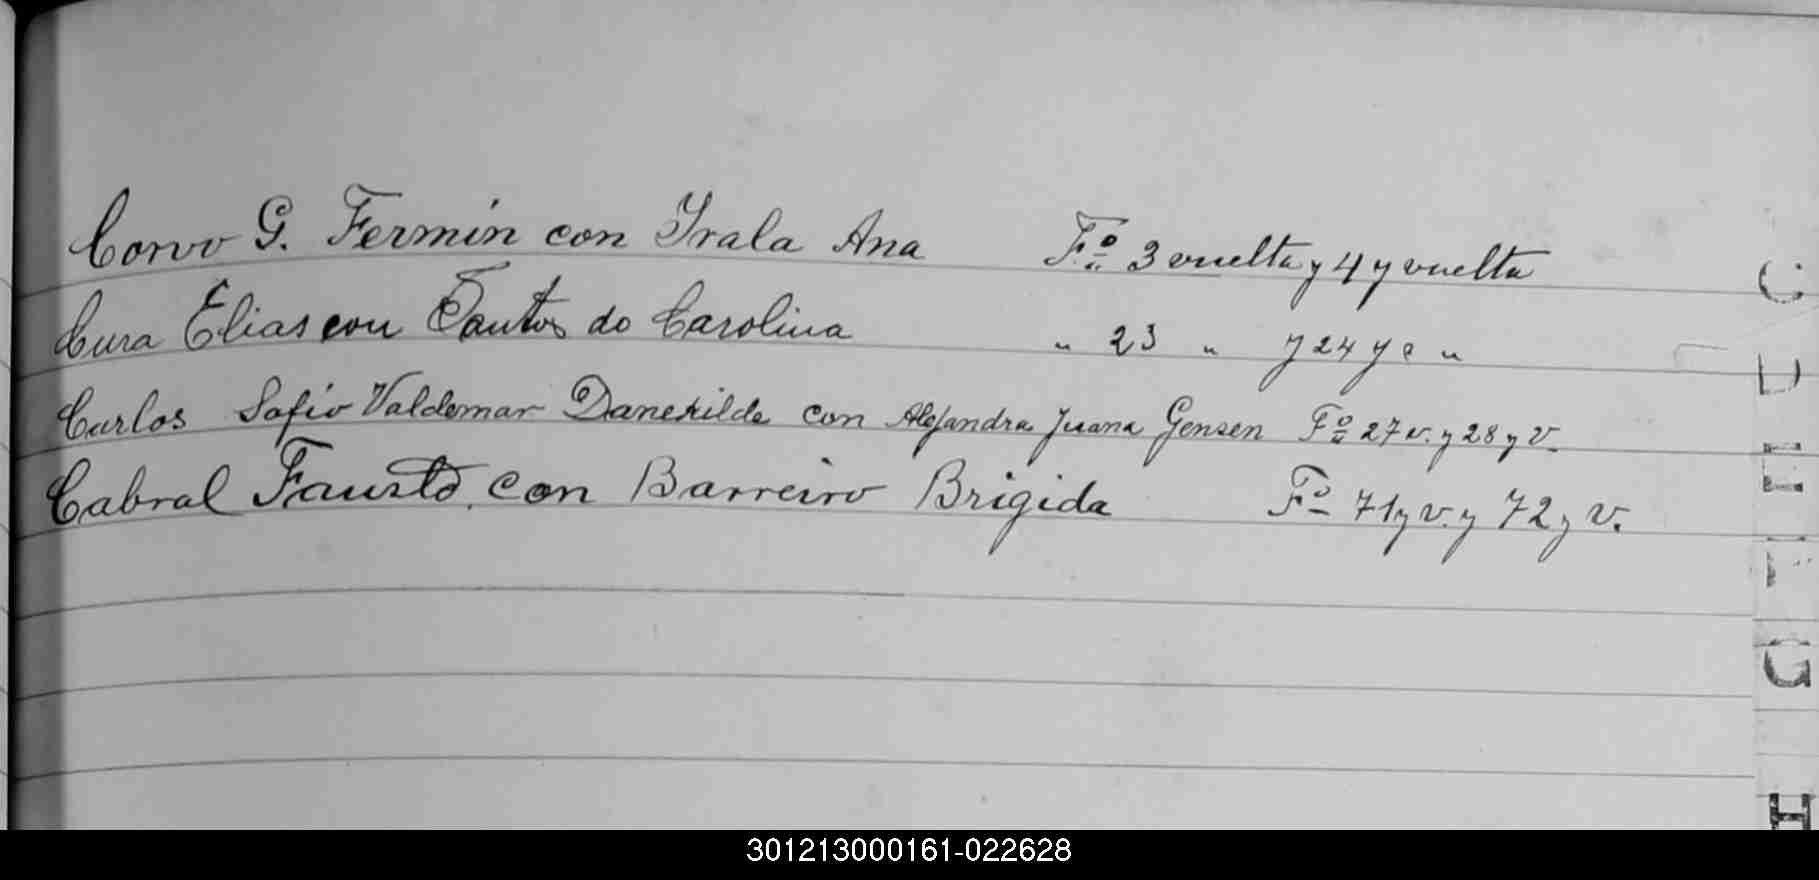 Corvo G. Fermin con Yrala Ana Fº 3 vuelta y 4 y vuelta
Cura Elias con Santos do Carolina " 23 " y 24 y "
Carlos Sofio Valdemar Danekilde con Alejandra Juana Gensen Fº 27 v. y 28 y v.
Cabral Fausto con Barreiro Brigida Fº 71 y v. y 72 y v.
C
D
E
F
G
H
301213000161-022628